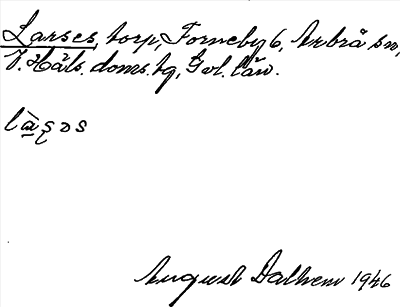 Larses, torp, Forneby 6, Arbrå sn,
V. Häls. doms. tg, Gvl. län.
làşɔs
August Dalhem 1946